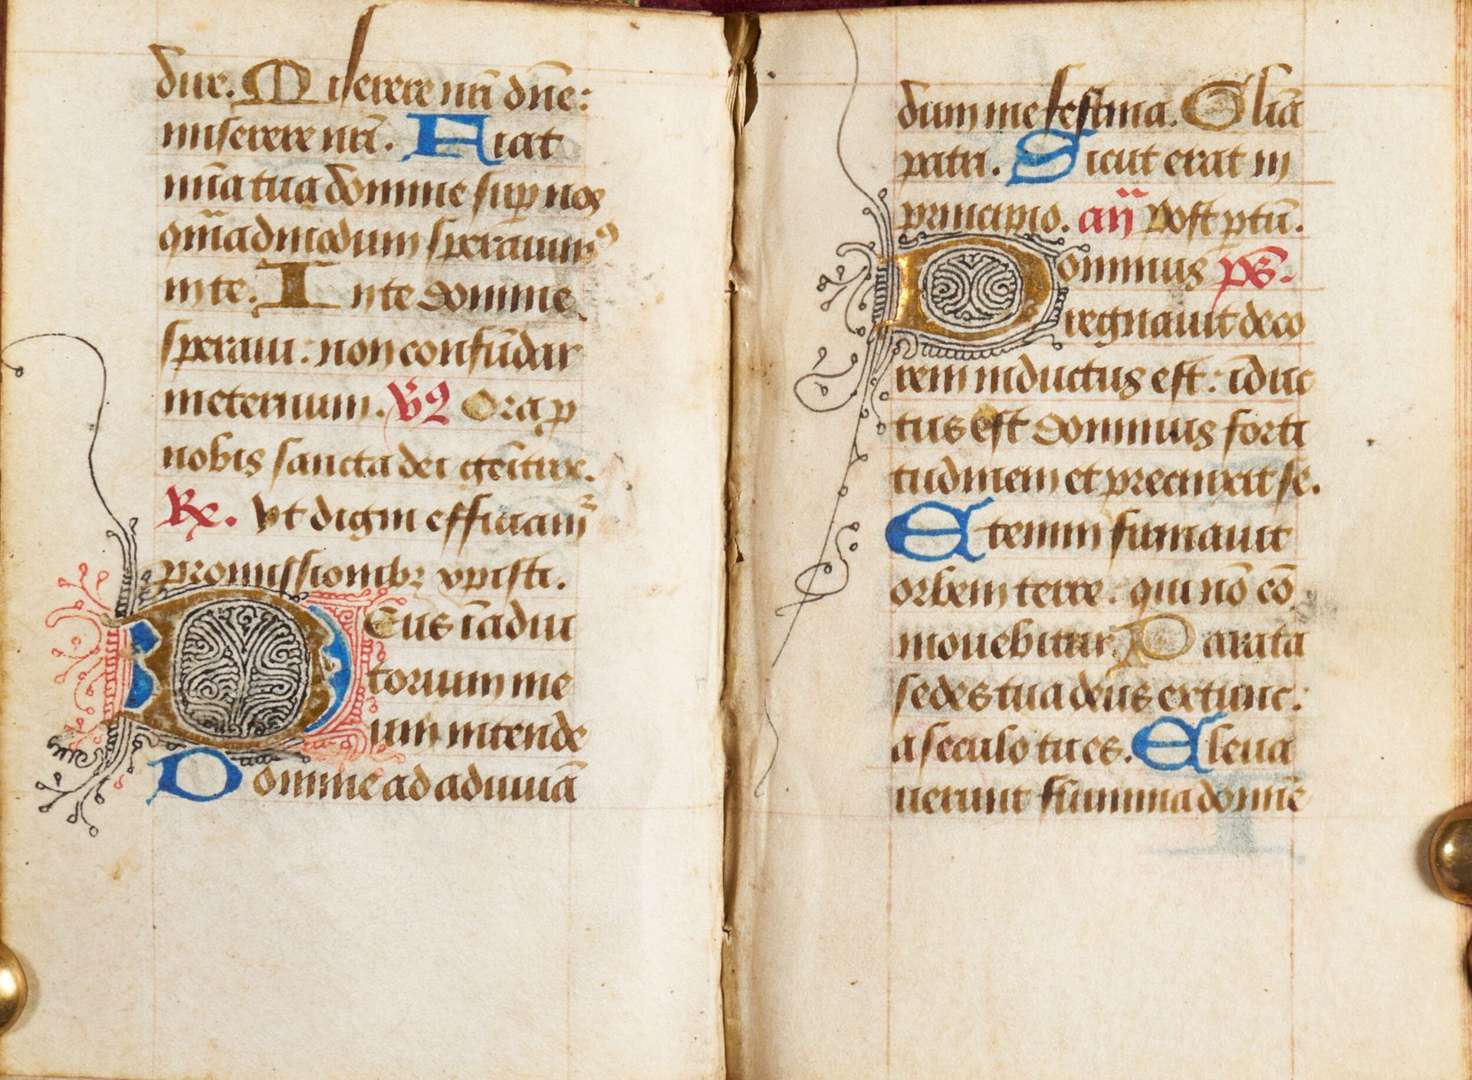 dire. Miserere nr̄i dn̄e:
miserere nr̄i. Fiat
mīa tua domine sup nos
quēadmodum sperauim⁹
in te. In te domine
speraui: non confūdar
in eternum. V̄ Ora p
nobis sancta dei genitrix.
Rx. Vt digni efficiam̄
promissionibꝫ xpisti.
Deus ī adiu
torium me
um intende
Domine ad adiuuā
dum me festina. Gliā
patri. Sicut erat in
principio. añ Post ptū.
Dominus ps.
regnauit deco
rem indutus est: īduc
tus est dominus forti
tudinem et precinxit se.
Etenim firmauit
orbem terre: qui nō cō
mouebitur. Parata
sedes tua deus ex tunc:
a seculo tu es. Eleua
uerunt flumina domīe